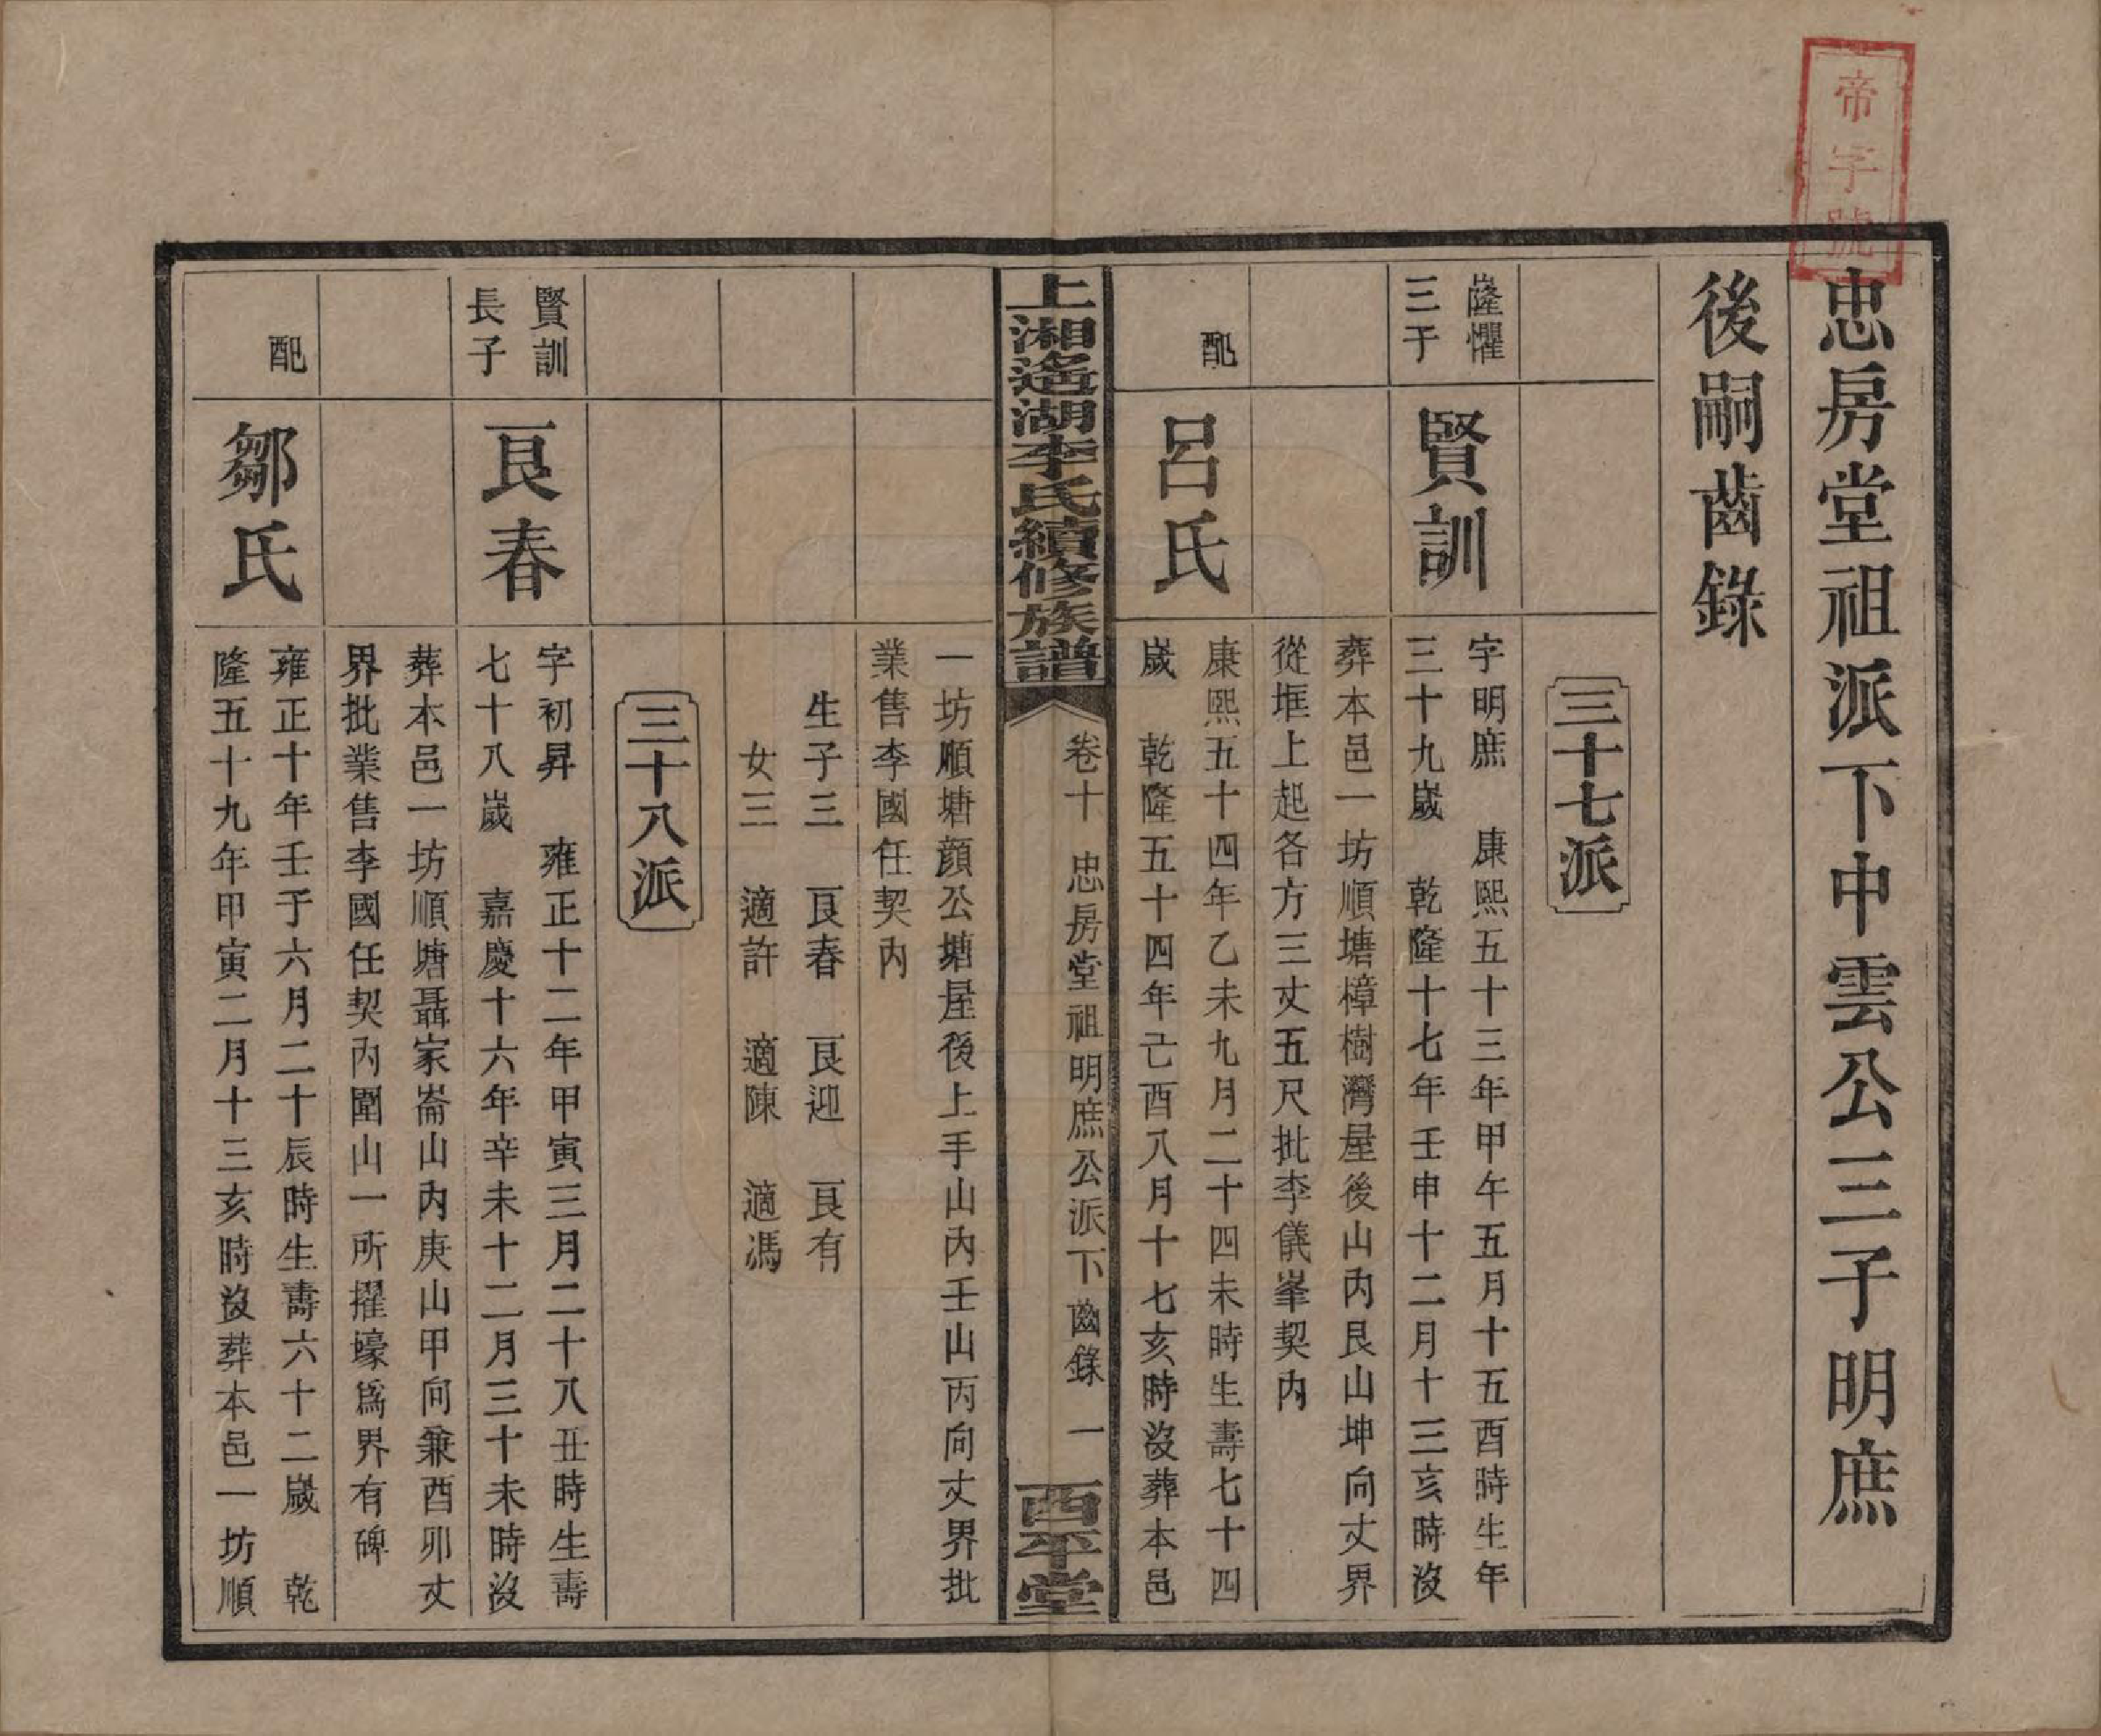 帝字號
忠房堂祖派下中雲公三子明庶
後嗣齒錄
三十七派
隆懼
三子
賢訓
字明庶　康熙五十三年甲午五月十五酉時生年
三十九歲　乾隆十七年壬申十二月十三亥時沒
葬本邑一坊順塘樟樹灣屋後山內艮山坤向丈界
從框上起各方三丈五尺批李儀峯契內
配
呂氏
康熙五十四年乙未九月二十四未時生壽七十四
歲　乾隆五十四年己酉八月十七亥時沒葬本邑
上湘遙湖李氏續修族譜
卷十　忠房堂祖明庶公派下齒錄　一
西平堂
一坊順塘顏公塘屋後上手山內壬山丙向丈界批
業售李國任契內
生子三　艮春　艮迎　艮有
女三　適許　適陳　適馮
三十八派
賢訓
長子
艮春
字初昇　雍正十二年甲寅三月二十八丑時生壽
七十八歲　嘉慶十六年辛未十二月三十未時沒
葬本邑一坊順塘聶家崙山內庚山甲向兼酉卯丈
界批業售李國任契內圍山一所擢壕為界有碑
配
鄒氏
雍正十年壬子六月二十辰時生壽六十二歲　乾
隆五十九年甲寅二月十三亥時沒葬本邑一坊順